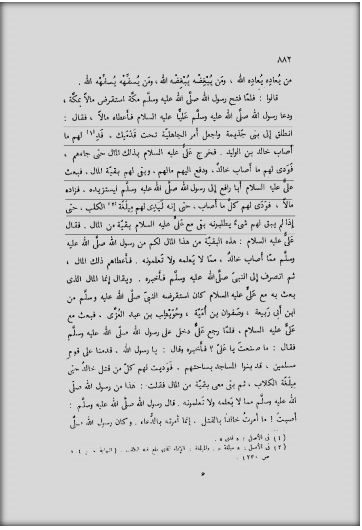 ٨٨٢
من يُعادِه يُعادِه الله ، ومَن يُبْغِضْه يُبْغِضْه الله، ومَن يُسفِّهْه يُسفِّهْه الله .
قالوا : فلمّا فتح رسول الله صلّى الله عليه وسلّم مكّة استقرض مالاً بمكّة ،
ودعا رسول الله صلّى الله عليه وسلّم عليًّا عليه السلام فأعطاه مالاً ، فقال :
انطلق إلى بنى جَذيمة واجعل أمر الجاهليّة تحت قدَمَيك ، فَدِ(١) لهم ما
أصاب خالد بن الوليد . فخرج علىٌّ عليه السلام بذلك المال حتى جاءهم ،
فوَدَى لهم ما أصاب خالدٌ، ودفع إليهم مالهم، وبقى لهم بقيّة المال. فبعث
علىٌّ عليه السلام أبا رافع إلى رسول الله صلّى الله عليه وسلّم ليستزيده ، فزاده
مالاً ، فوَدَى لهم كلَّ ما أصاب، حتى إنه لَيَدِى لهم مِيلَغَة(٢) الكلاب ، حتى
إذا لم يبق لهم شىءٌ يطلبونه بقى مع علىٍّ عليه السلام بقيّة من المال. فقال
علىٌّ عليه السلام : هذه البقيّة من هذا المال لكم من رسول الله صلّى الله عليه
وسلّم ممّا أصاب خالد، ممّا لا يَعلمه ولا تعلمونه. فأعطاهم ذلك المال ،
ثم انصرف إلى النبىّ صلّى الله عليه وسلّم فأخبره. ويقال إنما المال الذى
بعث به مع علىٍّ عليه السلام كان استقرضه النبىّ صلّى الله عليه وسلّم من
ابن أبى ربيعة ، وصَفوان بن أُميّة ، وحُوَيْطِب بن عبد العُزَّى . فبعث مع
علىٍّ عليه السلام، فلمّا رجع علىٌّ دخل على رسول الله صلّى الله عليه وسلّم
فقال : ما صنعتَ يا علىّ ؟ فأخبره وقال : يا رسول الله . قدمنا على قومٍ
مسلمين ، قد بنوا المساجد بساحتهم. فوَدَيت لهم كلّ من قتل خالدٌ حتى
مِيلَغَة الكلاب ، ثم بقى معى بقيّة من المال فقلت : هذا من رسول الله
صلّى الله عليه وسلّم ممّا لا يعلمه ولا تعلمونه . قال رسول الله صلّى الله عليه وسلّم :
أصبتَ ! ما أمرتُ خالدًا بالقتل. إنما أمرته بالدُّعاء. وكان رسول الله صلّى
(١) فى الأصل : « فدى » .
(٢) فى الأصل : « مبلغة » . والميلغة : الإناء الذى يلغ فيه الكلب . ( النهاية ، ج ٤
ص ٢٣٠ ) .